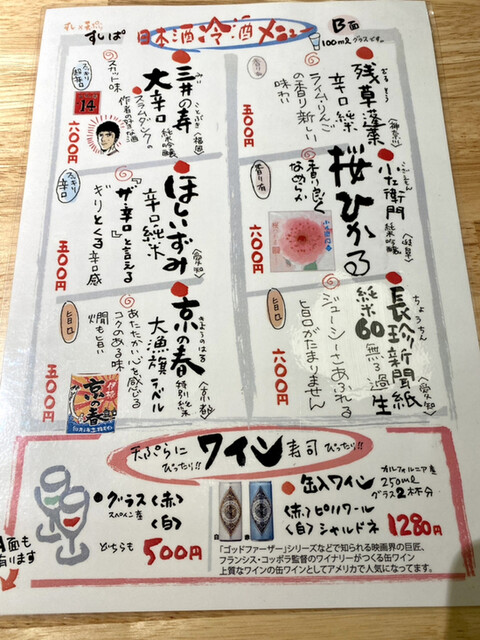 すし×天ぷら
すしぱ
日本酒冷酒メニュー
B面
100mlグラスです。
残草蓬莱
ざる そう
〈神奈川〉
辛口純米
ライム・りんご
の香り新しい
味わい
500円
香り有
桜ひかる
小左衛門
こざえもん
純米吟醸
〈岐阜〉
香り良く
なめらか
600円
旨口
長珍新聞紙
ちょうちん
〈愛知〉
純米60 無ろ過生
ジューシーさあふれる
旨口がたまりません
600円
スッキリ
超辛口
三井の寿
みい ことぶき
〈福岡〉
大辛口
純米吟醸
スラムダンクの
作者の好きな酒
スカッと味
14
600円
スッキリ
辛口
ほしいずみ
〈愛知〉
辛口純米
『ザ・辛口』と言える
ギリとくる辛口感
500円
旨口
京の春
きょうのはる
〈京都〉
大漁旗ラベル
特別純米
あたたかい心を感じる
コクのある味
燗も旨い
京の春
500円
天ぷらに
ぴったり!!
ワイン
寿司
ぴったり!!
・グラス〈赤〉
スペイン産
〈白〉
どちらも 500円
・缶入ワイン
カリフォルニア産
250ml
グラス2杯分
〈赤〉ピノノワール
〈白〉シャルドネ
1280円
白
赤
「ゴッドファーザー」シリーズなどで知られる映画界の巨匠、
フランシス・コッポラ監督のワイナリーがつくる缶ワイン
上質なワインの缶ワインとしてアメリカで人気になってます。
A面も
有ります